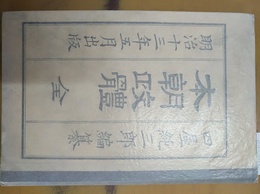 明治十三年五月出版
本朝政體 全
四屋純三郎編纂